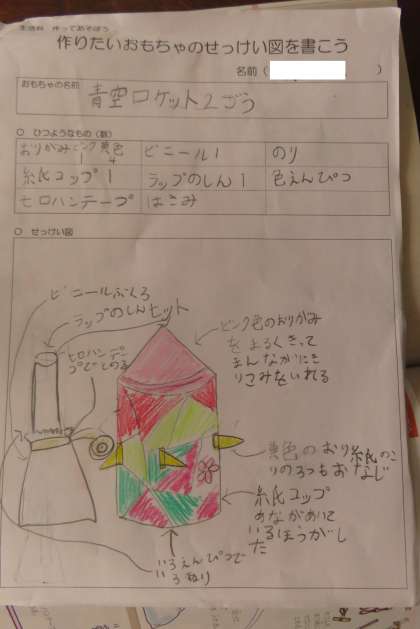 生活科 作ってあそぼう
作りたいおもちゃのせっけい図を書こう
名前（　　　　　）
おもちゃの名前
青空ロケット2ごう
○ ひつようなもの（数）
おりがみピンク1黄色4
ビニール1
のり
紙コップ1
ラップのしん1
色えんぴつ
セロハンテープ
はさみ
○ せっけい図
ビニールぶくろ
ラップのしんヒット
セロハンテー
プでとめる
ピンク色のおりがみ
をまるくきって
まんなかにき
りこみをいれる
黄色のおり紙のこ
りの3つもおなじ
紙コップ
あながあいて
いるほうがし
た
いろえんぴつで
いろぬり